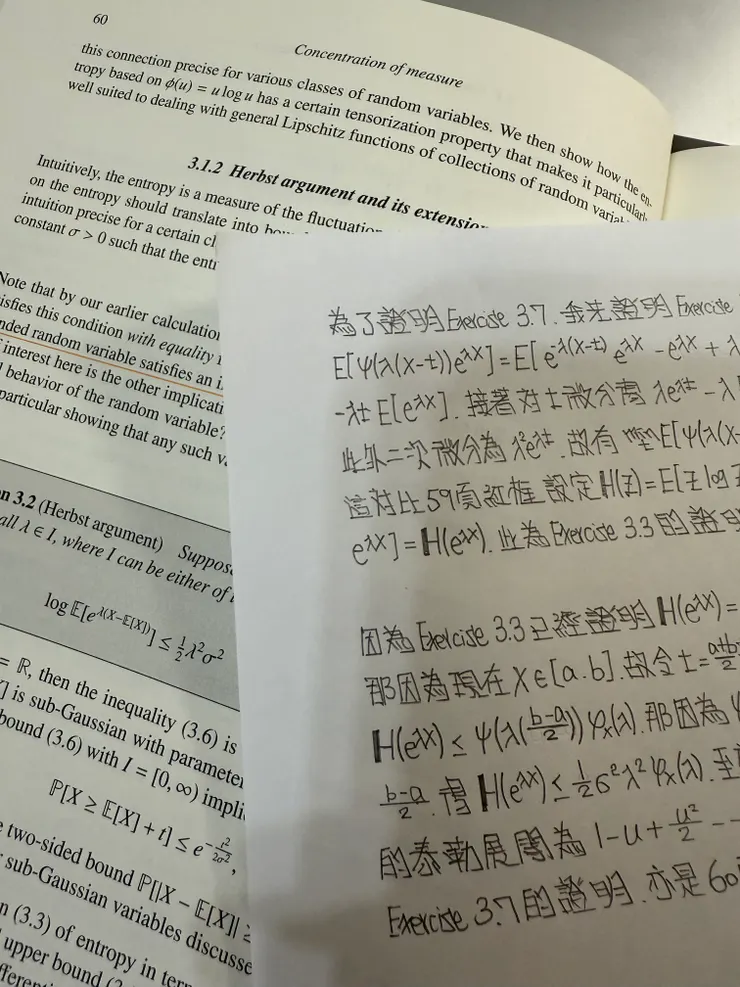 60
Concentration of measure
this connection precise for various classes of random variables. We then show how the en-
tropy based on ϕ(u) = u log u has a certain tensorization property that makes it particularly
well suited to dealing with general Lipschitz functions of collections of random
3.1.2 Herbst argument and its
Intuitively, the entropy is a measure of the
on the entropy should translate into
intuition precise for a certain
constant σ > 0 such that the
Note that by our earlier
this condition with equality
random variable satisfies an
interest here is the other
behavior of the random variable?
particular showing that any such
3.2 (Herbst argument)
all λ ∈ I, where I can be either of
log 𝔼[e^{λ(X−𝔼[X])}] ≤ ½λ²σ²
= ℝ, then the inequality (3.6) is
is sub-Gaussian with parameter
bound (3.6) with I = [0, ∞)
ℙ[X ≥ 𝔼[X] + t] ≤ e^{−t²/2σ²},
two-sided bound ℙ[|X − 𝔼[X]| ≥
sub-Gaussian variables
(3.3) of entropy in
upper bound
為了證明 Exercise 3.7. 我先證明 Exercise
E[ψ(λ(X-t))e^{λX}] = E[e^{-λ(X-t)} e^{λX} - e^{λX} + λ
-λt E[e^{λX}]. 接著對 t 微分為 λe^{λt} - λ
此外二次微分為 λ²e^{λt}. 故有 E[ψ(λ(X-
這對比59頁紅框 設定 H(Z) = E[Z log Z
e^{λX}] = H(e^{λX}). 此為 Exercise 3.3 的證明
因為 Exercise 3.3 已經證明 H(e^{λX}) =
那因為現在 X∈[a.b]. 故令 t =
H(e^{λX}) ≤ ψ(λ(\frac{b-a}{2})) φ_x(λ). 那因為
\frac{b-a}{2}. 得 H(e^{λX}) ≤ ½σ²λ²φ_x(λ).
的泰勒展開為 1-u+\frac{u²}{2} - -
Exercise 3.7 的證明. 亦是 60